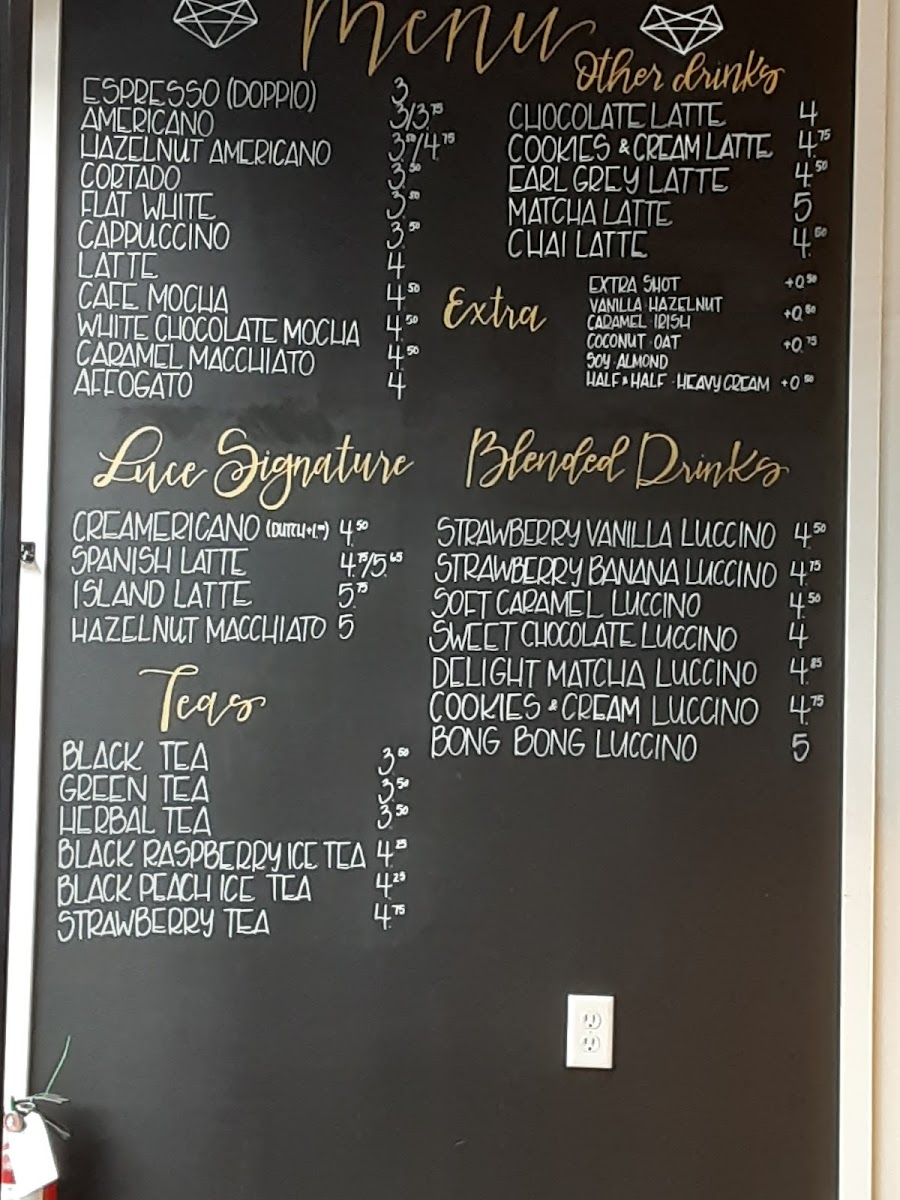 Menu
ESPRESSO (DOPPIO) 3
AMERICANO 3/3.75
HAZELNUT AMERICANO 3.50/4.75
CORTADO 3.50
FLAT WHITE 3.50
CAPPUCCINO 3.50
LATTE 4
CAFE MOCHA 4.50
WHITE CHOCOLATE MOCHA 4.50
CARAMEL MACCHIATO 4.50
AFFOGATO 4
Other drinks
CHOCOLATE LATTE 4
COOKIES & CREAM LATTE 4.75
EARL GREY LATTE 4.50
MATCHA LATTE 5
CHAI LATTE 4.50
Extra
EXTRA SHOT +0.50
VANILLA · HAZELNUT
CARAMEL · IRISH +0.50
COCONUT · OAT
SOY · ALMOND +0.75
HALF & HALF · HEAVY CREAM +0.50
Luce Signature
CREAMERICANO (DUTCH+1.00) 4.50
SPANISH LATTE 4.75/5.65
ISLAND LATTE 5.75
HAZELNUT MACCHIATO 5
Teas
BLACK TEA 3.50
GREEN TEA 3.50
HERBAL TEA 3.50
BLACK RASPBERRY ICE TEA 4.25
BLACK PEACH ICE TEA 4.25
STRAWBERRY TEA 4.75
Blended Drinks
STRAWBERRY VANILLA LUCCINO 4.50
STRAWBERRY BANANA LUCCINO 4.75
SOFT CARAMEL LUCCINO 4.50
SWEET CHOCOLATE LUCCINO 4
DELIGHT MATCHA LUCCINO 4.85
COOKIES & CREAM LUCCINO 4.75
BONG BONG LUCCINO 5